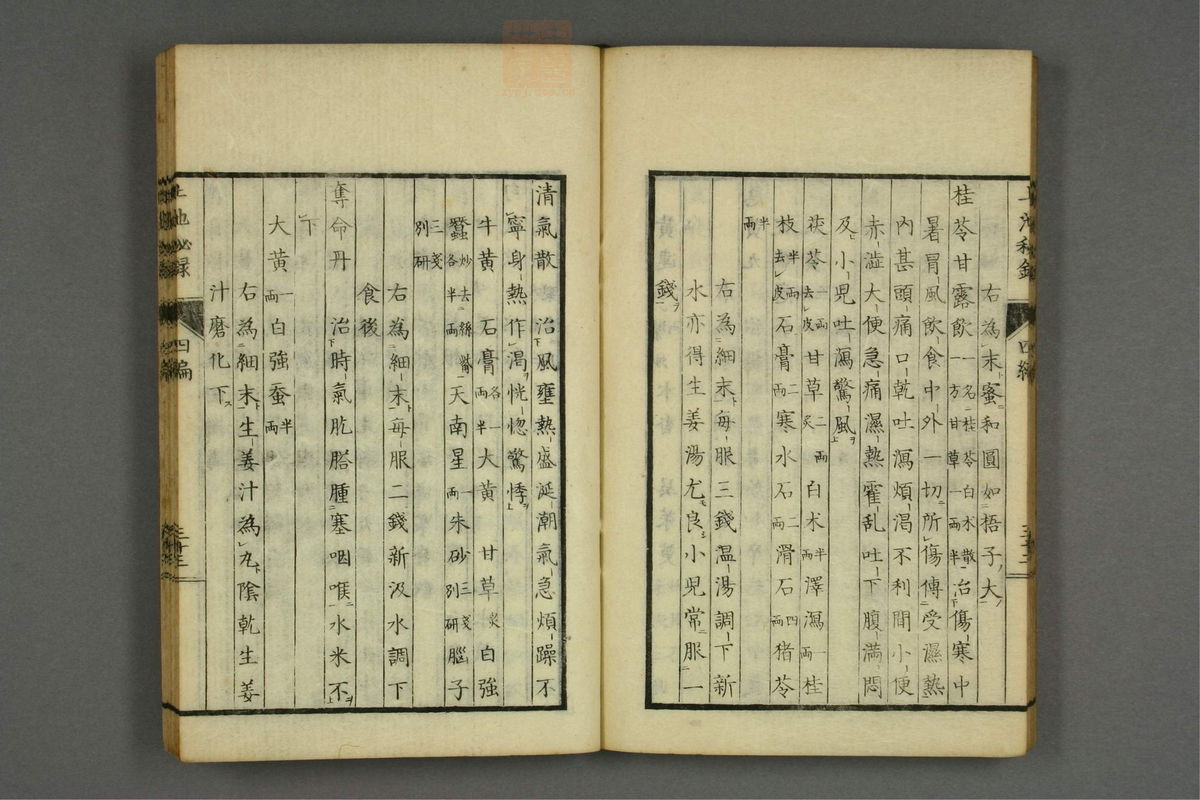 右為末蜜和圓如梧子大
桂苓甘露飲一名桂苓白朮散一方甘草一両半治傷寒中
暑冒風飲食中外一切所傷傳受濕熱
內甚頭痛口乾吐瀉煩渴不利間小便
赤澁大便急痛濕熱霍乱吐下腹満悶
及小兒吐瀉驚風
茯苓去皮一両甘草二両炙白朮半両澤瀉一両桂
枝半両去皮石膏二両寒水石二両滑石四両猪苓
半両
右為細末毎服三錢温湯調下新
水亦得生姜湯尤良小兒常服一
錢
清氣散治風壅熱盛涎潮氣急煩躁不
寧身熱作渴恍惚驚悸
牛黃石膏各一両半大黃甘草炙白強
蠶炒去絲觜各半両天南星一両朱砂三戔別研腦子
三戔別研
右為細末毎服二錢新汲水調下
食後
奪命丹治時氣肐𦞂腫塞咽喉水米不
下
大黃一両白強蚕半両
右為細末生姜汁為丸陰乾生姜
汁磨化下
四編
四編